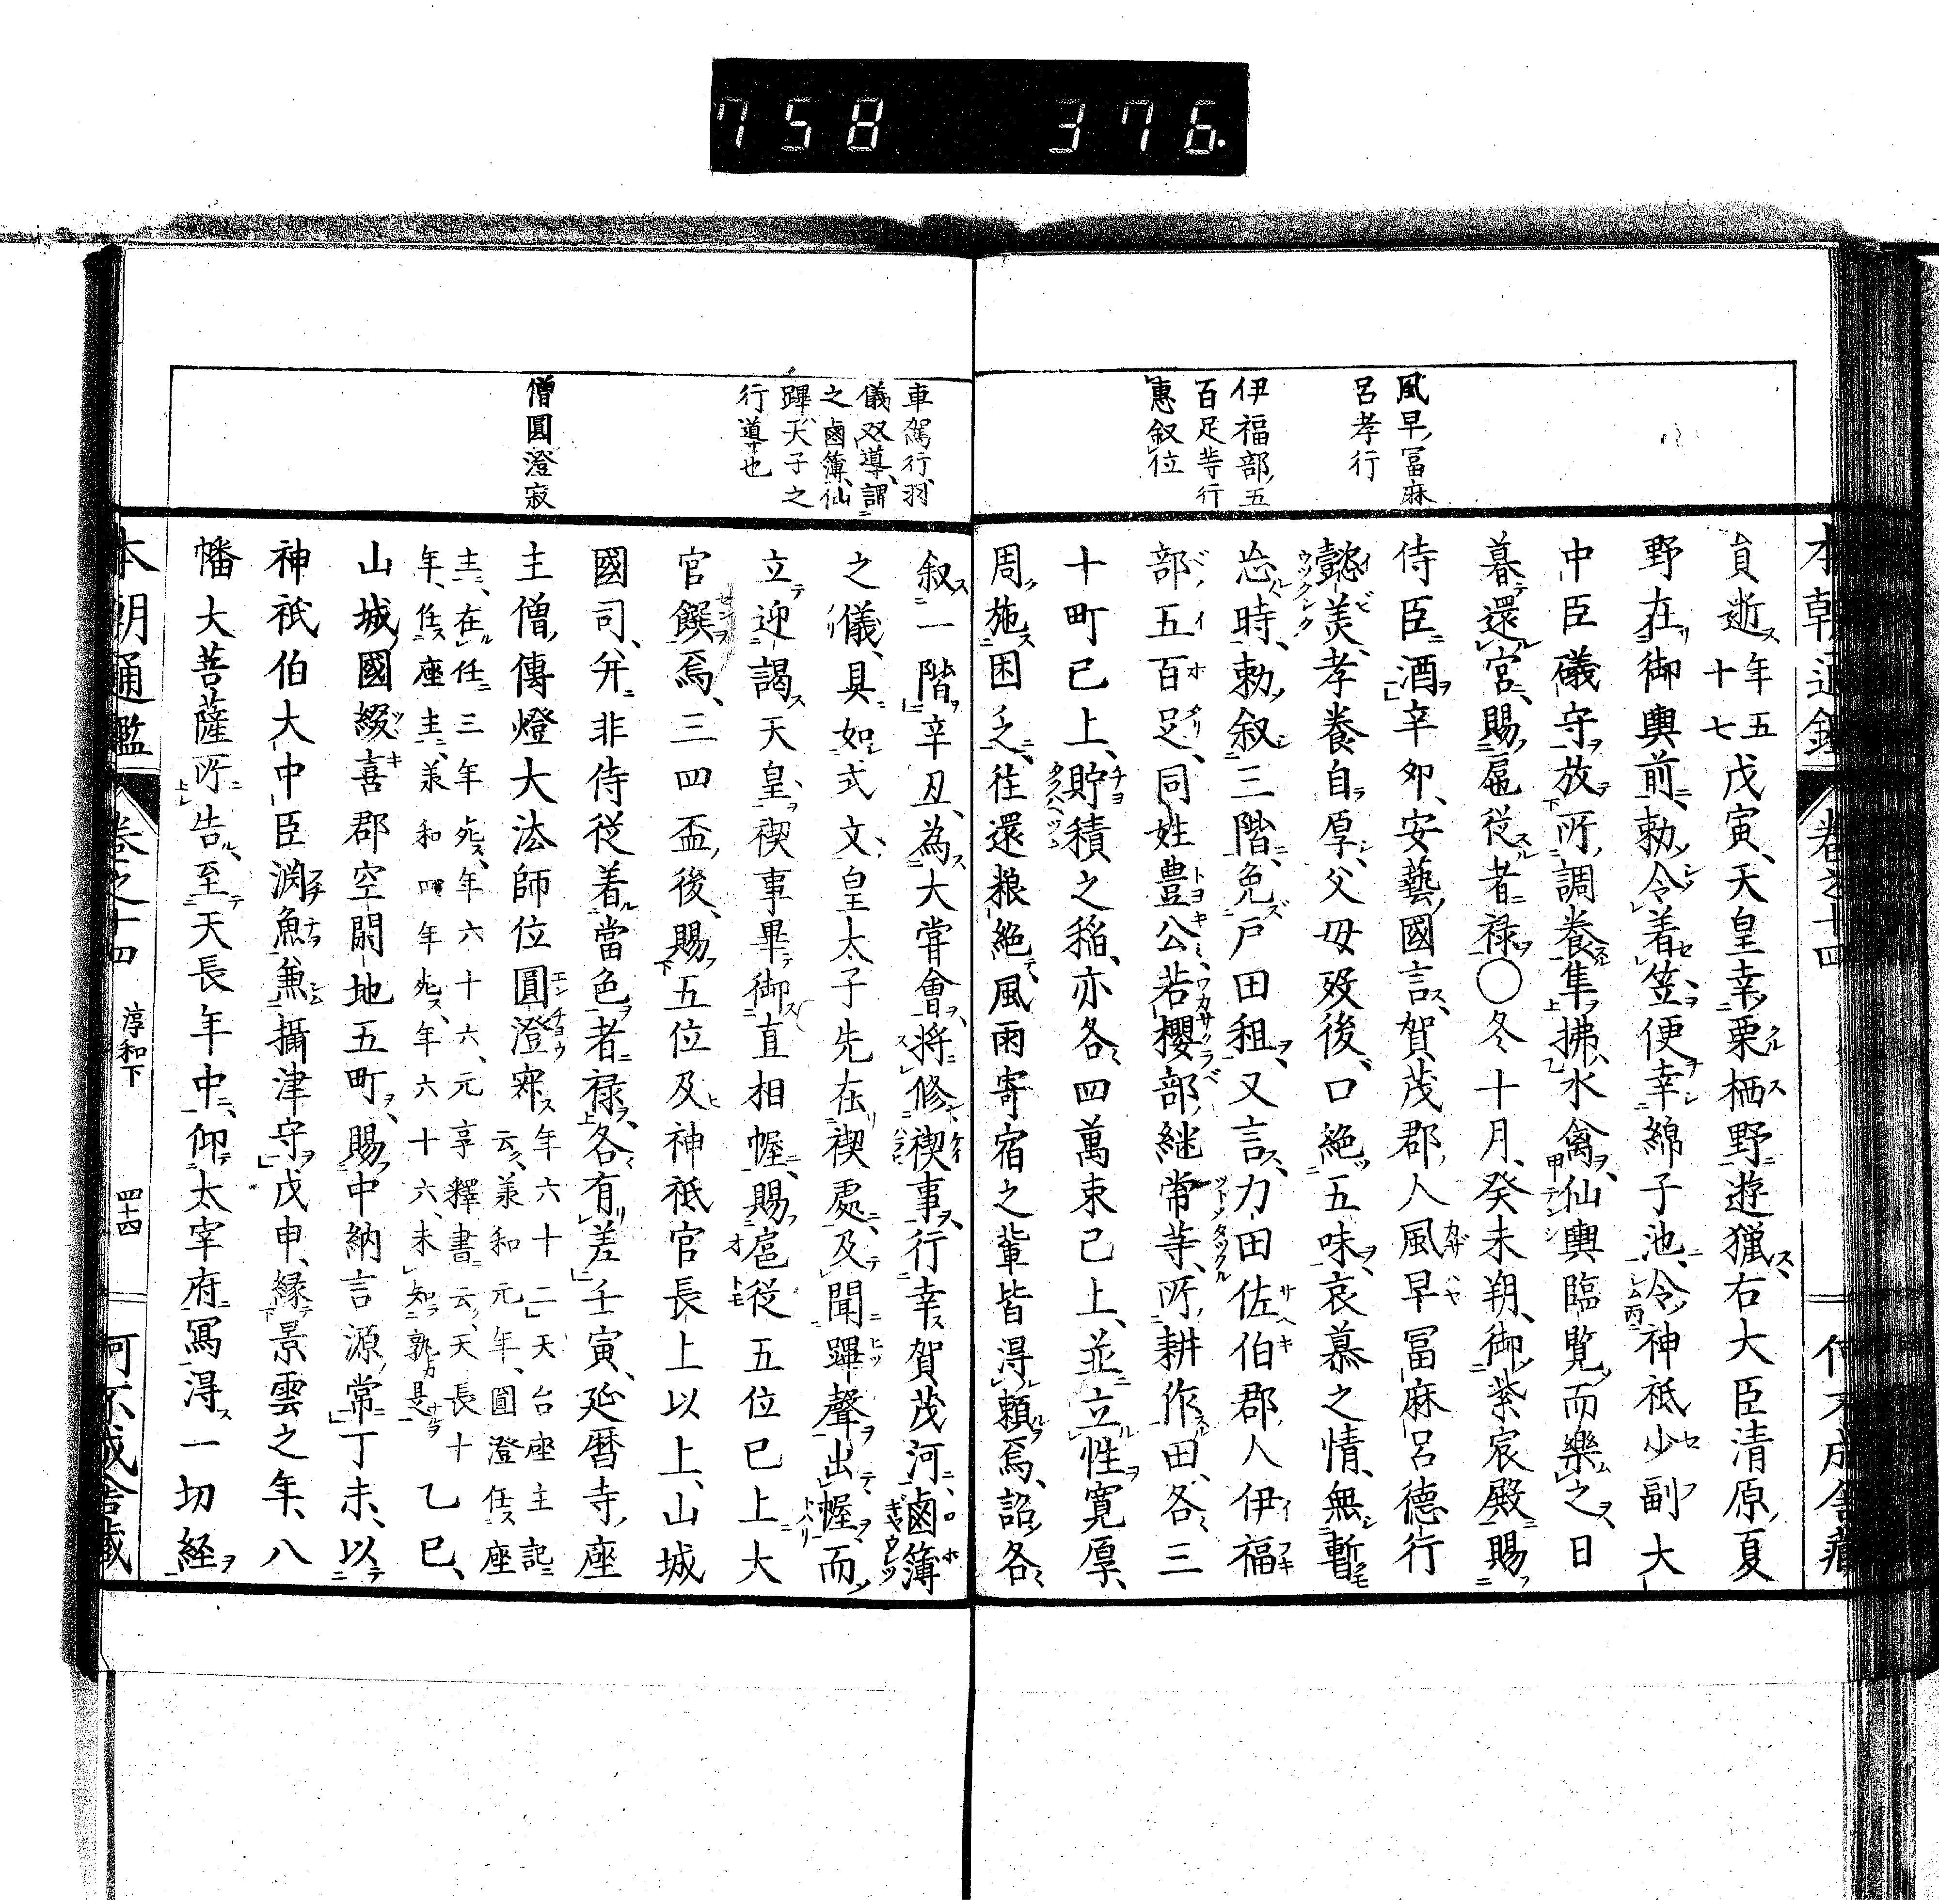 758 376.
本朝通鑑 卷之十四 何不成舍藏
風早冨麻
呂孝行
伊福部五
百足䓁行
惠叙位
貟逝年五十七戊寅天皇幸栗栖野遊獵右大臣清原夏
野在御輿前勅令着笠便幸綿子池令神祇少副大
中臣礒守放所調養隼拂水禽仙輿臨覧而樂之日
暮還宮賜扈從者禄〇冬十月癸未朔御紫宸殿賜
侍臣酒辛夘安藝國言賀茂郡人風早冨麻呂德行
懿美孝養自厚父母歿後口絶五味哀慕之情無暫
忘時勅叙三階免戸田租又言力田佐伯郡人伊福
部五百足同姓豊公若櫻部継常䓁所耕作田各三
十町已上貯積之稲亦各四萬束已上並立性寛厚
周施困乏往還粮絶風雨寄宿之輩皆淂頼焉詔各
車駕行羽
儀双導謂
之鹵簿仙
蹕天子之
行導也
僧圓澄寂
叙一階辛丑為大甞會將修禊事行幸賀茂河鹵簿
之儀具如式文皇太子先在禊處及聞蹕聲出幄而
立迎謁天皇禊事畢御直相幄賜扈從五位已上大
官饌焉三四盃後賜五位及神祇官長上以上山城
國司并非侍從着當色者禄各有差壬寅延暦寺座
主僧傳燈大法師位圓澄寂年六十二天台座主記云羕和元年圓澄任座
主在任三年死年六十六元亨釋書云天長十年任座主羕和四年死年六十六未知孰是乙巳
山城國綴喜郡空閑地五町賜中納言源常丁未以
神祇伯大中臣渕魚兼攝津守戊申縁景雲之年八
幡大菩薩所告至天長年中仰太宰府寫淂一切経
本朝通鑑 卷之十四 淳和下 四十四 何不成舍藏